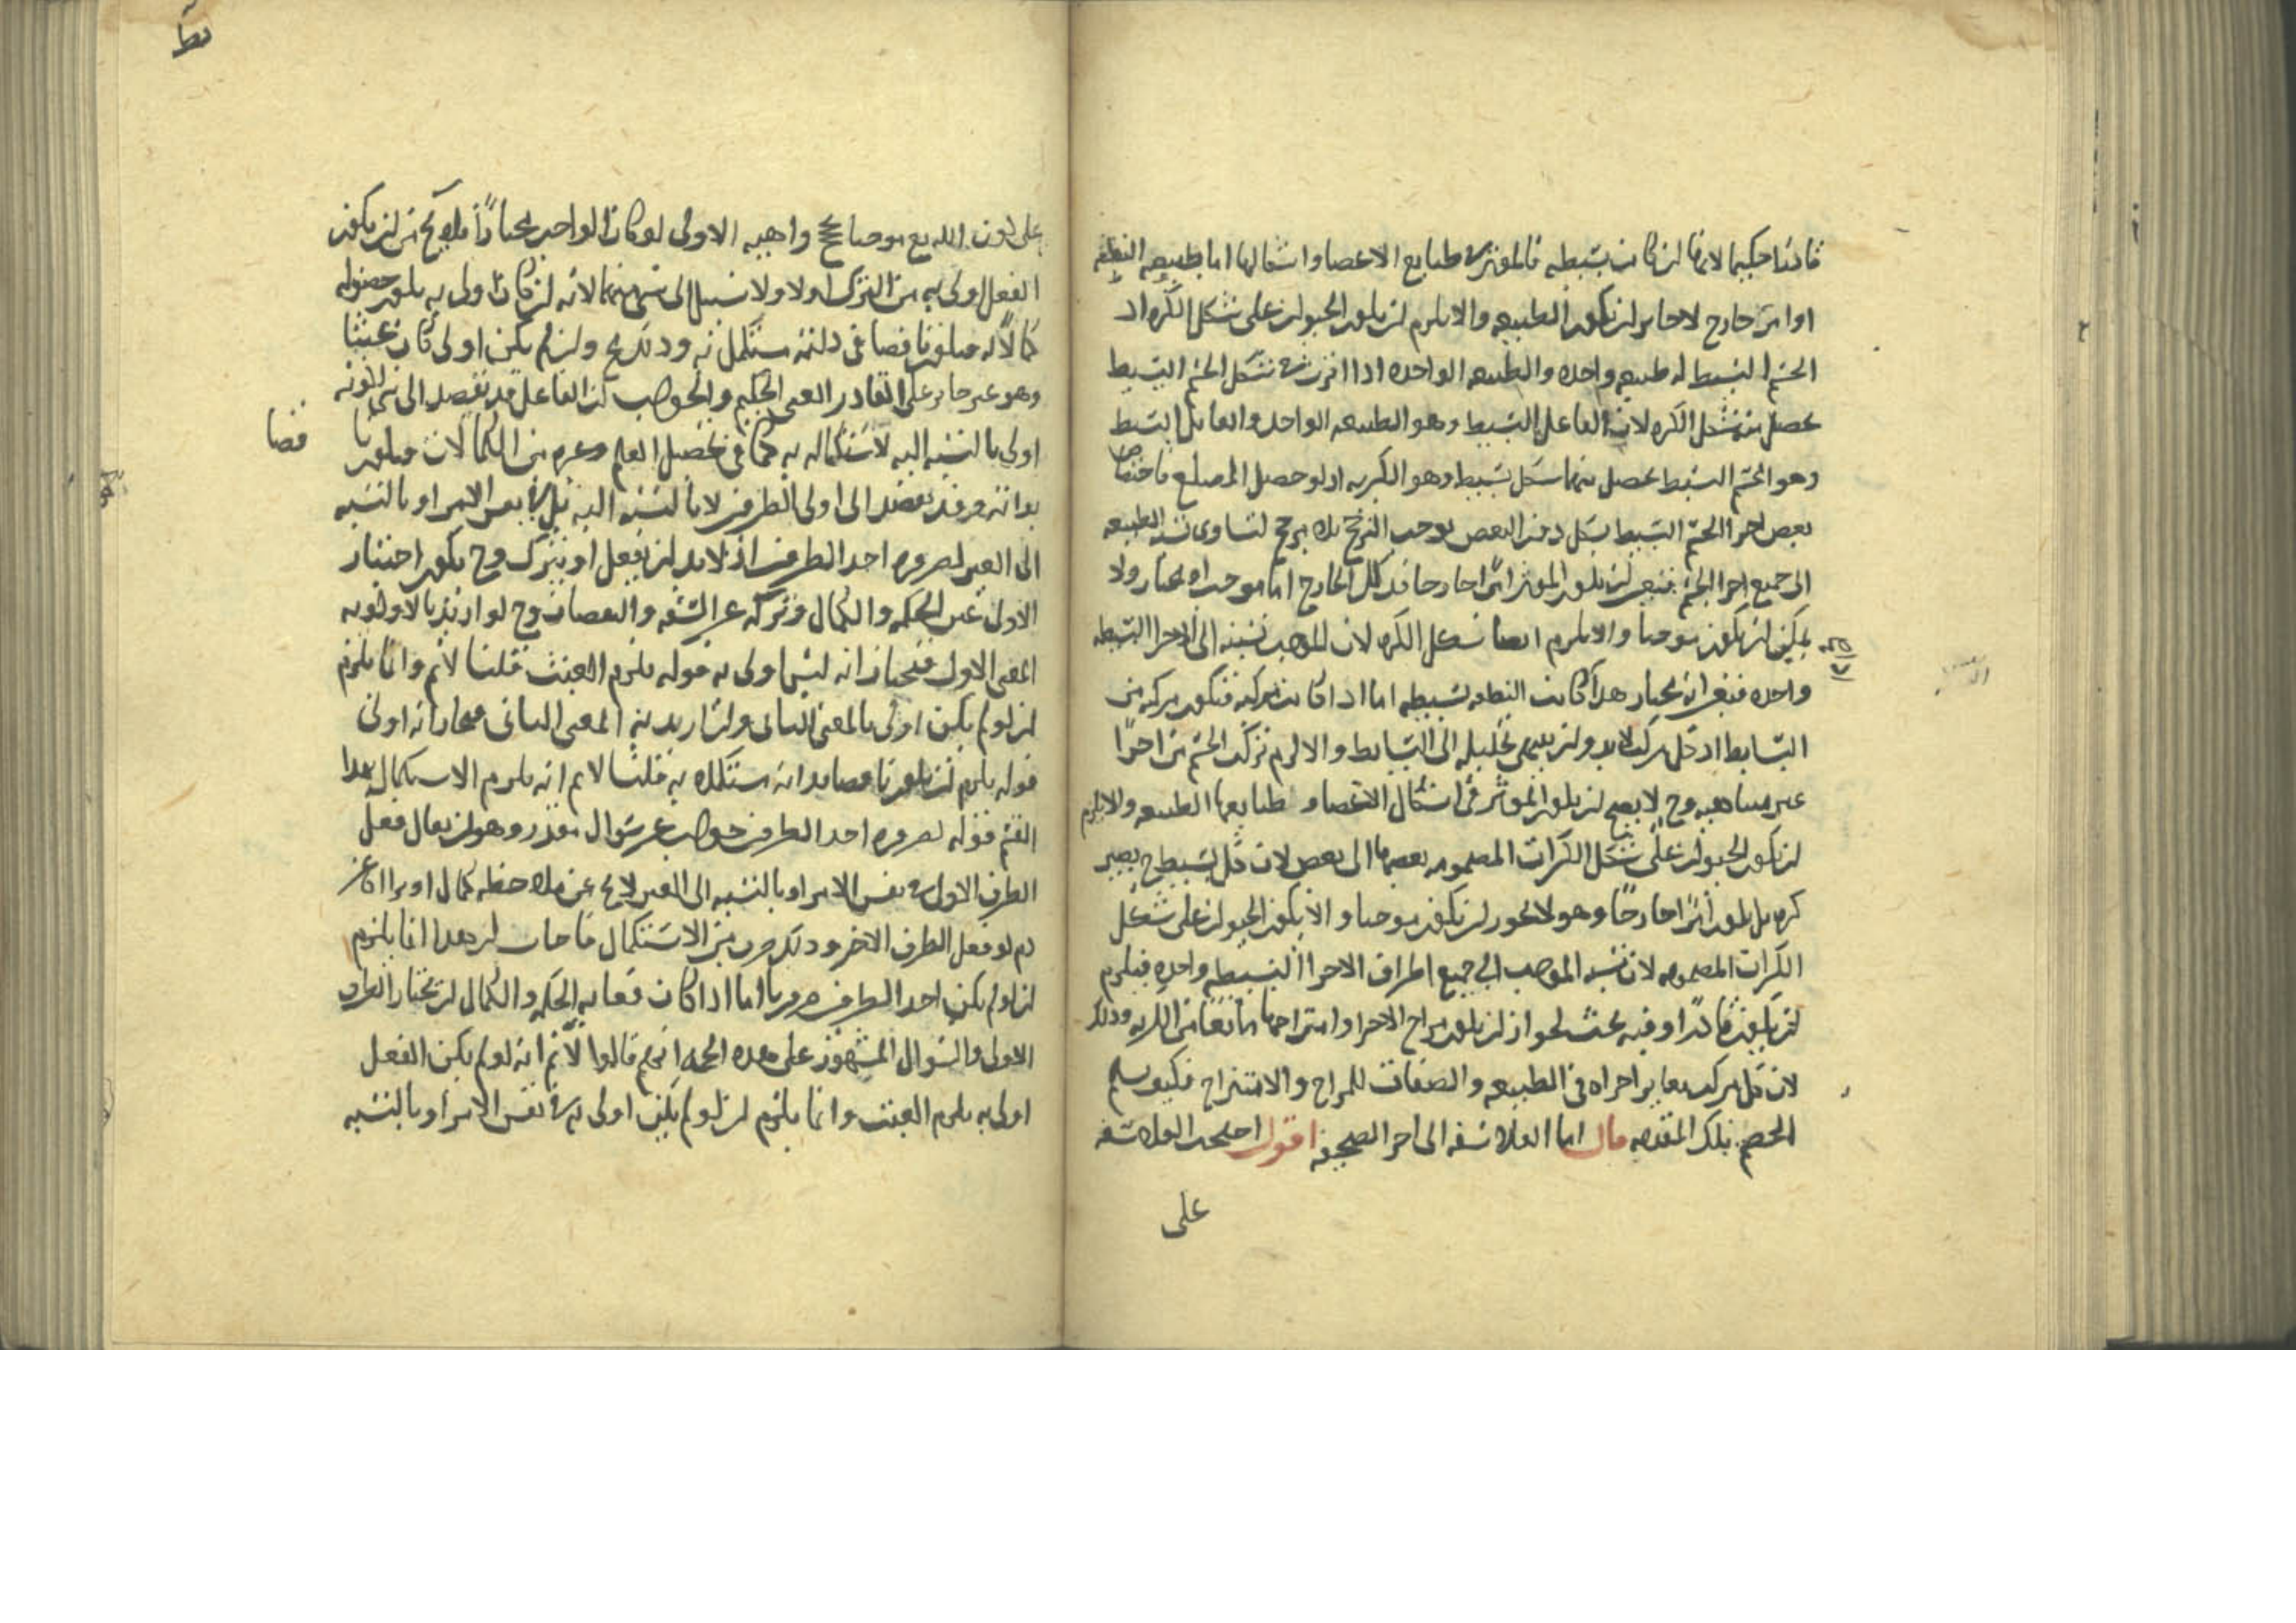 قادرا حكيما لانها ان كانت بسيطه فالمؤثر في طبايع الاعضا واشكالها اما طبيعه النطفه
او امر خارج لا جايز ان يكون الطبيعه والا يلزم ان يكون الحيوان على شكل الكره اذ
الجسم البسيط له طبيعه واحده والطبيعه الواحده اذا اثرت في شكل الجسم البسيط
يحصل منه شكل الكره لان الفاعل البسيط وهو الطبيعه الواحده والقابل البسيط
وهو الجسم البسيط يحصل منهما شكل بسيط وهو الكريه اذ لو حصل المضلع فاختصاص
بعض اجزا الجسم البسيط بشكل دون البعض يوجب الترجيح بلا مرجح لتساوى نسبه الطبيعه
الى جميع اجزا الجسم فتعين ان يكون المؤثر امرا خارجا فذلك الخارج اما موجب او مختار ولا
يمكن ان يكون موجبا والا يلزم ايضا شكل الكره لان الموجب نسبته الى الاجزا البسيطه
واحده فتعين انه مختار هذا اذا كانت النطفه بسيطه اما اذا كانت مركبه فتكون مركبه من
البسايط اذ كل مركب لا بد وان ينتهى تحليله الى البسايط والا لزم تركب الجسم من اجزا
غير متناهيه وح لا يصح ان يكون المؤثر فى اشكال الاعضا و طبايعها الطبيعه والا يلزم
ان يكون الحيوان على شكل الكرات المضمومه بعضها الى بعض لان كل بسيط ح يصير
كره بل يكون امرا خارجا وهو لا يجوز ان يكون موجبا والا يكون الحيوان على شكل
الكرات المضمومه لان نسبه الموجب الى جميع اطراف الاجزا البسيطه واحده فيلزم
ان يكون قادرا وفيه بحث لجواز ان يكون مزاج الاجزا وامتزاجها مانعا من الكريه وذلك
لان كل مركب يغاير اجزاه فى الطبيعه والصفات للمزاج والامتزاج فكيف يسلم
الخصم تلك المقدمه قال اما الفلاسفه الى اخر الصحيفه اقول احتجت الفلاسفه
على
على كون الله تع موجبا بحجج واهيه الاولى لو كان الواجب مختارا فلا يخ من ان يكون
الفعل اولى به من الترك او لا ولا سبيل الى شى منهما لانه ان كان اولى به يكون حصوله
كمالا له فيكون ناقصا فى ذاته مستكملا به وذلك مح وان لم يكن اولى كان عبثا
وهو غير جايز على القادر الغنى الحكيم والجواب ان الفاعل قد يقصد الى شى لكونه
اولى بالنسبه اليه لاستكماله به كما فى تحصيل العلم وغيره من الكمالات فيكون نا
قصا
بذاته وقد يقصد الى اولى الطرفين لا بالنسبه اليه بل فى نفس الامر او بالنسبه
الى الغير لضروره احد الطرفين اذ لا بد ان يفعل او يترك وح يكون اختيار
الاولى عين الحكمه والكمال وتركه عين السفه والنقصان وح لو اريد بالاولويه
المعنى الاول فنختار انه ليس اولى به قوله يلزم العبث قلنا لا نم وانما يلزم
ان لو لم يكن اولى بالمعنى الثانى وان اريد به المعنى الثانى فنختار انه اولى
قوله يلزم ان يكون ناقصا بذاته مستكملا به قلنا لا نم انه يلزم الاستكمال بهذا
القسم فقوله لضروره احد الطرفين جواب عن سوال مقدر وهو ان يقال فعل
الطرف الاولى فى نفس الامر او بالنسبه الى الغير لا يخ عن ملاحظه كمال او براه عن
ذم لو فعل الطرف الاخر وذلك ضرب من الاستكمال فاجاب ان هذا انما يلزم
ان لو لم يكن احد الطرفين ضروريا اما اذا كان فغايه الحكمه والكمال ان يختار الطرف
الاولى والسوال المشهور على هذه الحجه انهم قالوا لا نم انه لو لم يكن الفعل
اولى به يلزم العبث وانما يلزم ان لو لم يكن اولى به فى نفس الامر او بالنسبه